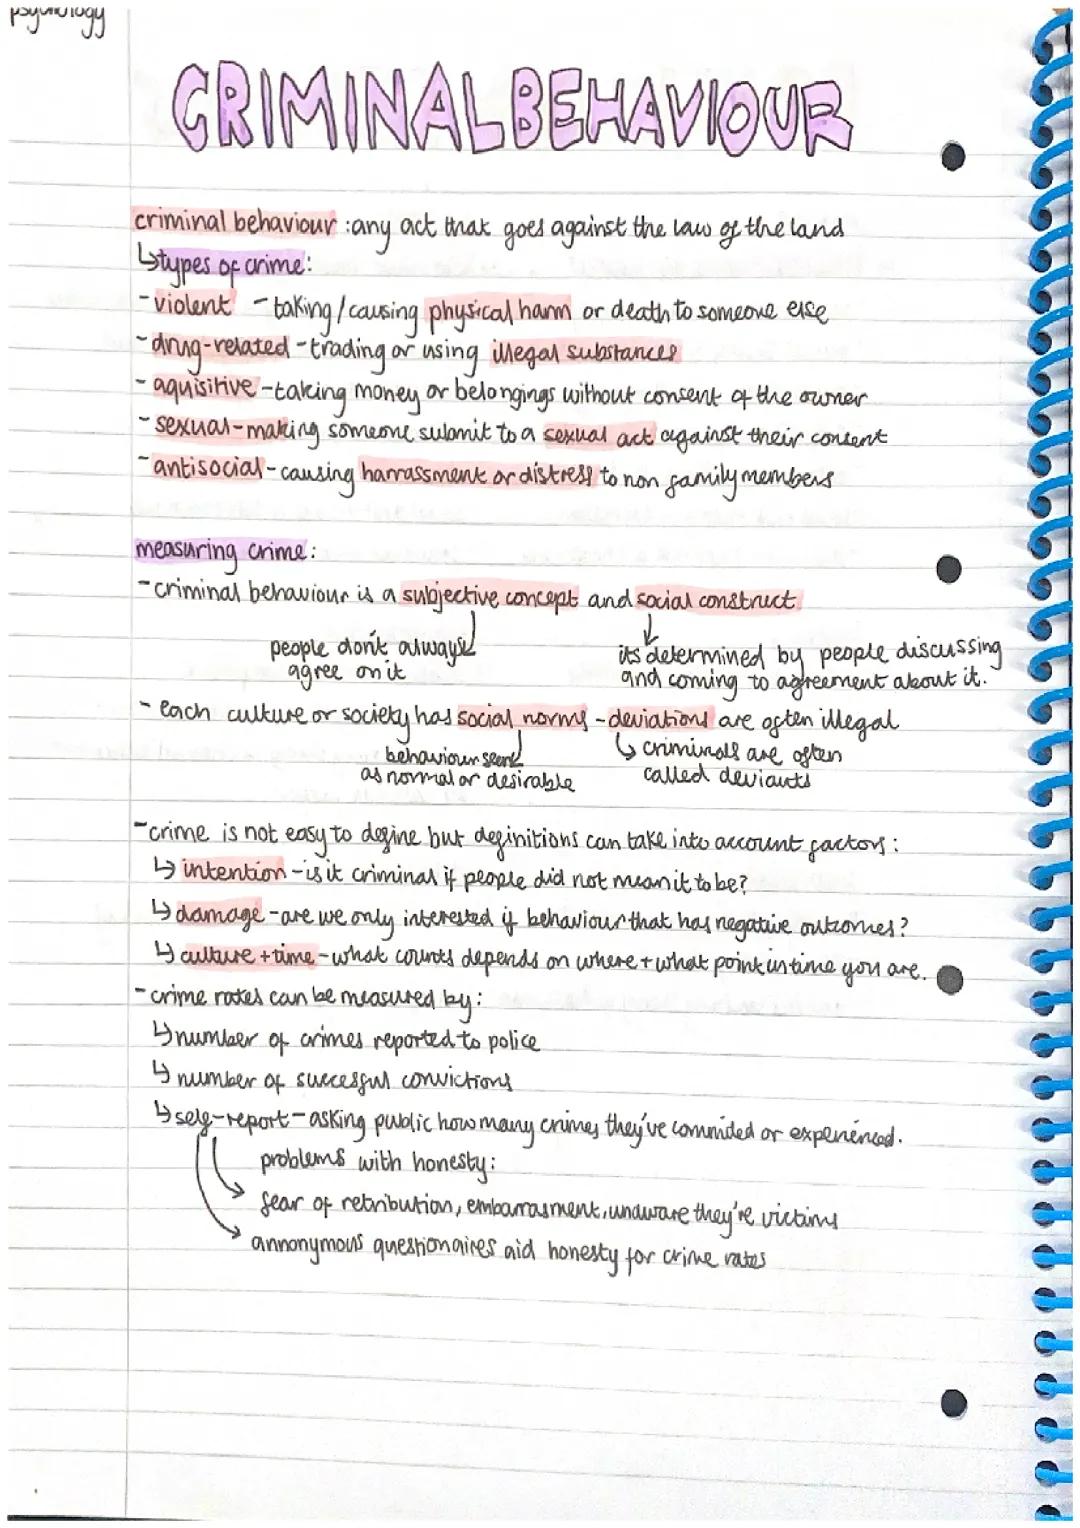 psychology
CRIMINAL BEHAVIOUR
criminal behaviour : any act that goes against the law of the land
↳types of crime:
- violent - taking/causing physical harm or death to someone else
- drug-related - trading or using illegal substances
- aquisitive - taking money or belongings without consent of the owner
- sexual - making someone submit to a sexual act against their consent
- antisocial - causing harrassment or distress to non family members
measuring crime:
- criminal behaviour is a subjective concept and social construct
people don't always its determined by people discussing
agree on it and coming to agreement about it.
- each culture or society has social norms - deviations are often illegal
behaviour seen ↳ criminals are often
as normal or desirable called deviants
- crime is not easy to define but definitions can take into account factors:
↳ intention - is it criminal if people did not mean it to be?
↳ damage - are we only interested if behaviour that has negative outcomes?
↳ culture + time - what counts depends on where + what point in time you are.
- crime rates can be measured by:
↳ number of crimes reported to police
↳ number of successful convictions
↳ self-report - asking public how many crimes they've commided or experienced.
problems with honesty:
fear of retribution, embarrasment, unaware they're victims
annonymous questionaires aid honesty for crime rates